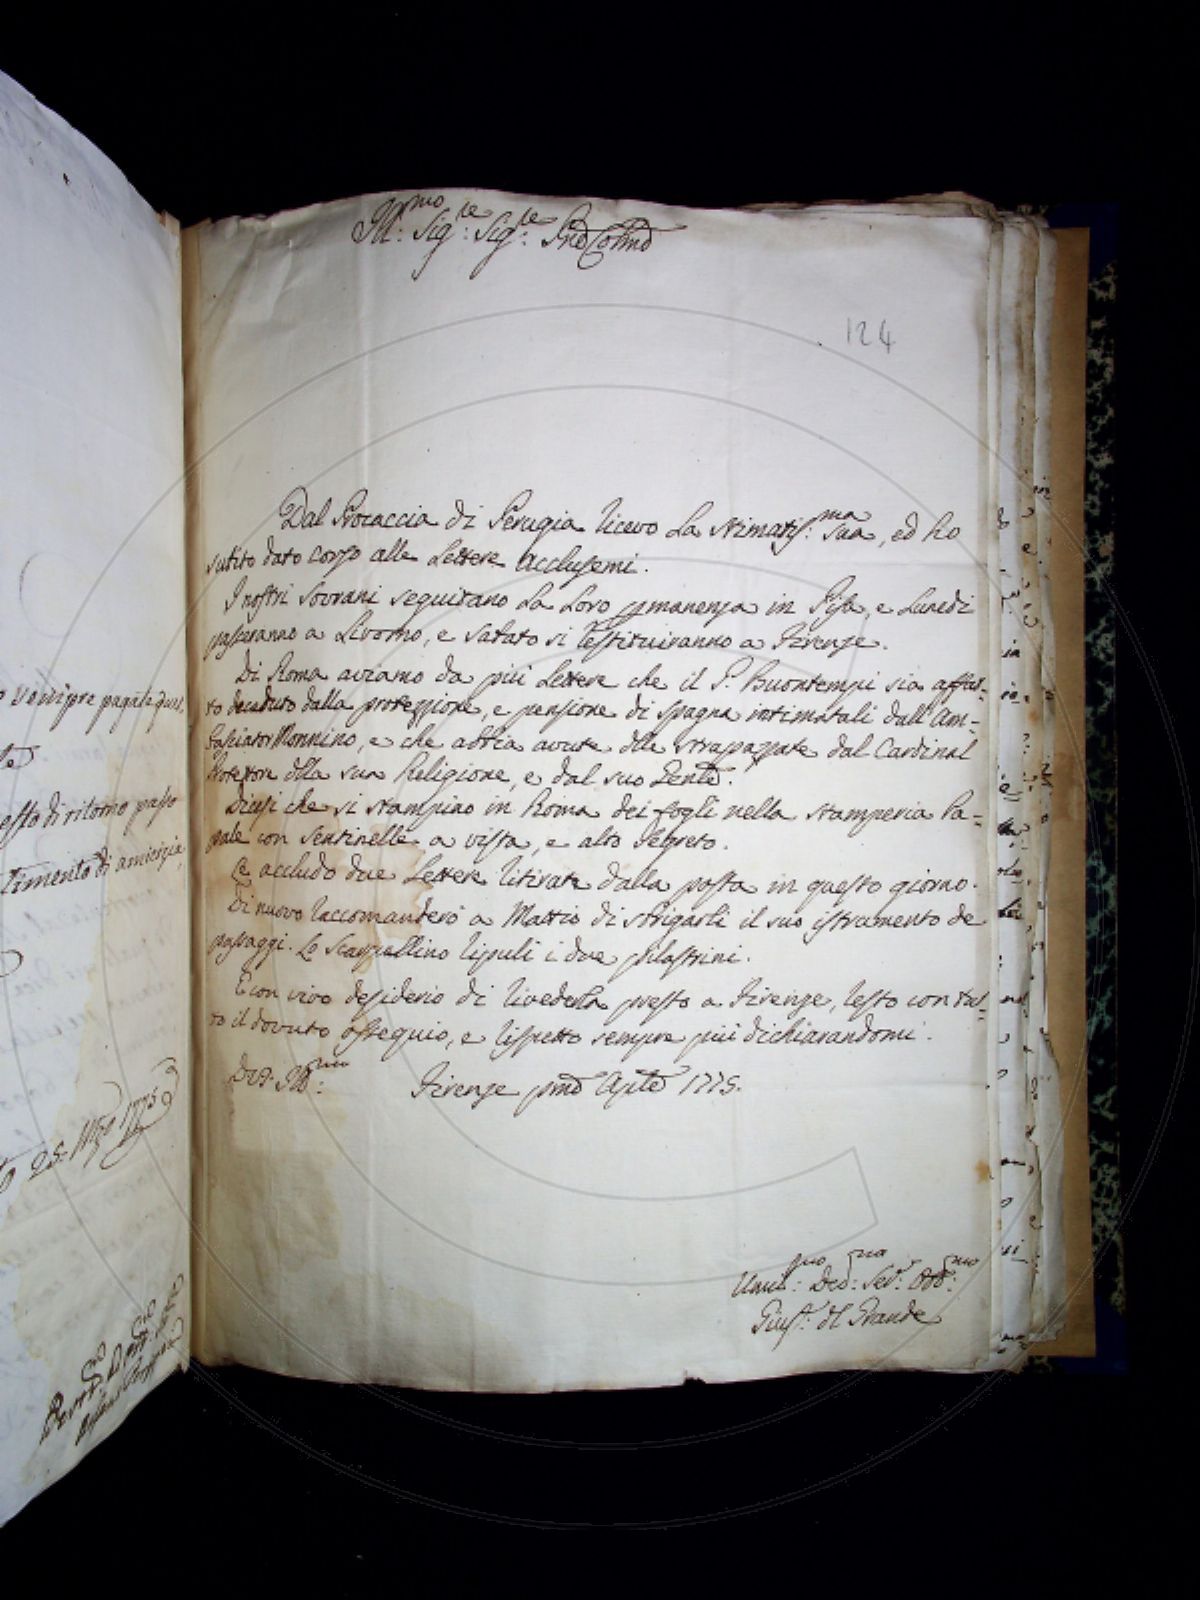 Ill:mo Sig:re Sig:re Prōe Colmō
124
Dal Procaccia di Perugia ricevo la stimatis:ma sua, ed ho
subito dato corso alle Lettere acclusemi.
I nostri Sovrani seguitano la Loro pmanenza in Pisa, e Lunedi
passeranno a Livorno, e sabato si restituiranno a Firenze.
Di Roma aviamo da più Lettere che il P. Buontempi sia affat-
to decaduto dalla protezzione, e pensione di Spagna intimatali dall'Am-
basciator Monnino, e che abbia avute dlle strapazzate dal Cardinal
Protettore dlla sua Religione, e dal suo Genlē.
Dicesi che si stampino in Roma dei fogli nella stamperia Pa-
pale con sentinelle a vista, e alto segreto.
Le accludo due Lettere ritirate dalla posta in questo giorno.
Di nuovo raccomanderò a Mattio di strigarli il suo istrumento de
passaggi. Lo Scarpellino ripulì i due pilastrini.
E con vivo desiderio di rivederla presto a Firenze, resto con tut-
to il dovuto ossequio, e rispetto sempre più dichiarandomi.
Di V.S. Ill:ma Firenze pmō Aplē 1775.
Umil:mo Dev:mo Ser:e Obb:mo
Gius: dl Grande
vensipre pagate quel
esso di ritorno passo
timento di amicizia
25: Mzo 1775